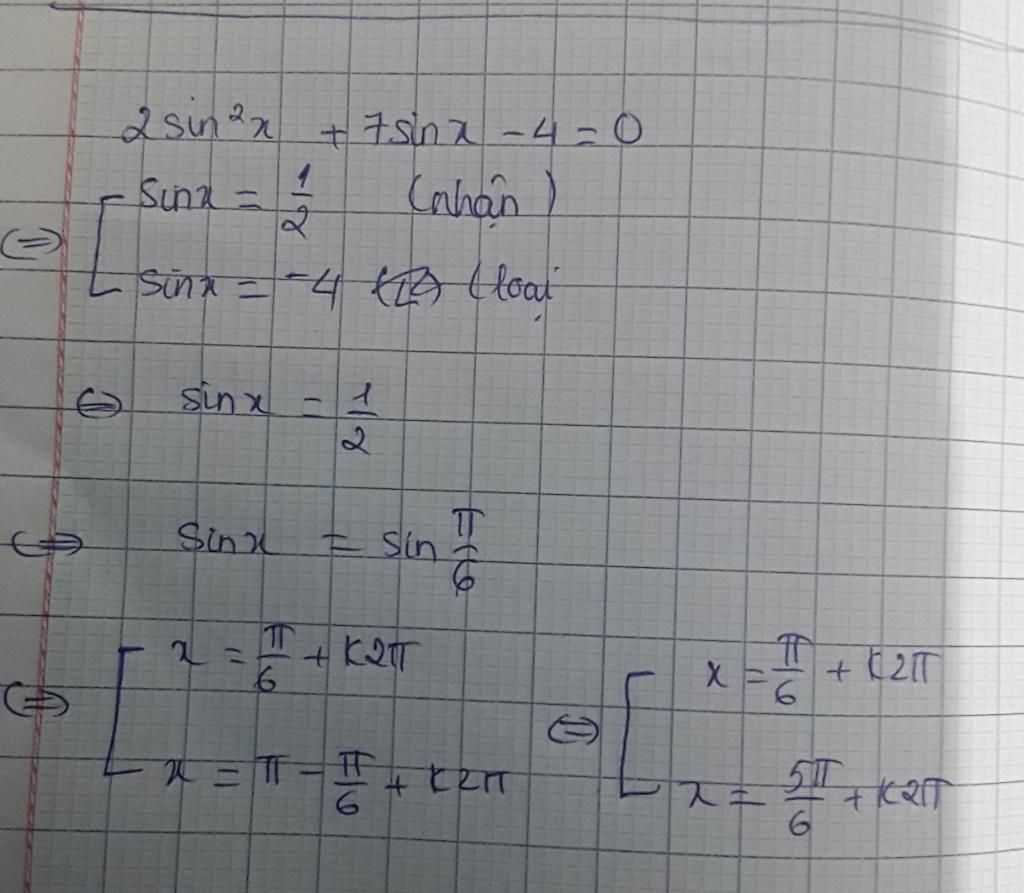 2 sin²x + 7sinx - 4 = 0
⇔ [ sinx = 1/2 (nhận)
sinx = -4 (loại
⇔ sinx = 1/2
⇔ sinx = sin π/6
⇔ [ x = π/6 + k2π ⇔ [ x = π/6 + k2π
x = π - π/6 + k2π x = 5π/6 + k2π